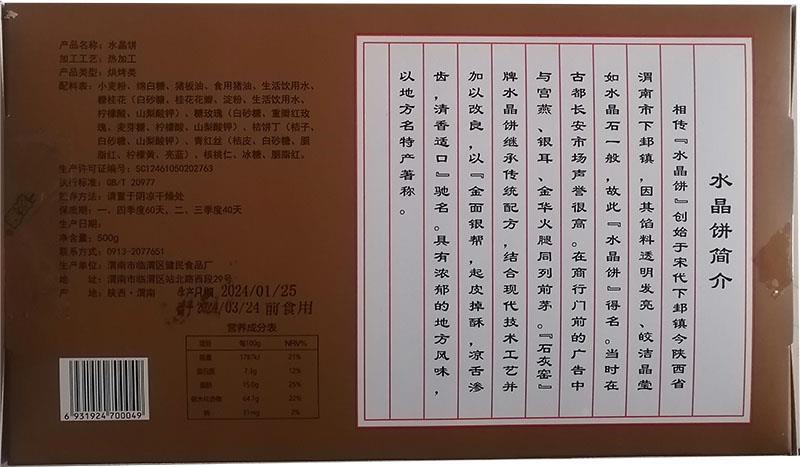 产品名称：水晶饼
加工工艺：热加工
产品类型：烘烤类
配料表：小麦粉、绵白糖、猪板油、食用猪油、生活饮用水、
糖桂花（白砂糖、桂花花瓣、淀粉、生活饮用水、
柠檬酸、山梨酸钾）、糖玫瑰（白砂糖、重瓣红玫
瑰、麦芽糖、柠檬酸、山梨酸钾）、桔饼丁（桔子、
白砂糖、山梨酸钾）、青红丝（桔皮、白砂糖、胭
脂红、柠檬黄、亮蓝）、核桃仁、冰糖、胭脂红。
生产许可证编号：SC12461050202763
执行标准：GB/T 20977
贮存方法：请置于阴凉干燥处
保质期：一、四季度60天，二、三季度40天
生产日期：
净含量：500g
联系方式：0913-2077651
生产单位：渭南市临渭区健民食品厂
地 址：渭南市临渭区站北路西段29号
产 地：陕西·渭南
生产日期 2024/01/25
2024/03/24 前食用
营养成分表
项目 每100g NRV%
能量 1787kJ 21%
蛋白质 7.3g 12%
脂肪 15.0g 25%
碳水化合物 64.7g 22%
钠 31mg 2%
6 931924 700049
水晶饼简介
相传『水晶饼』创始于宋代下邽镇今陕西省
渭南市下邽镇，因其馅料透明发亮、皎洁晶莹
如水晶石一般，故此『水晶饼』得名。当时在
古都长安市场声誉很高。在商行门前的广告中
与宫燕、银耳、金华火腿同列前茅。『石灰窑』
牌水晶饼继承传统配方，结合现代技术工艺并
加以改良，以『金面银帮，起皮掉酥，凉舌渗
齿，清香适口』驰名。具有浓郁的地方风味，
以地方名特产著称。